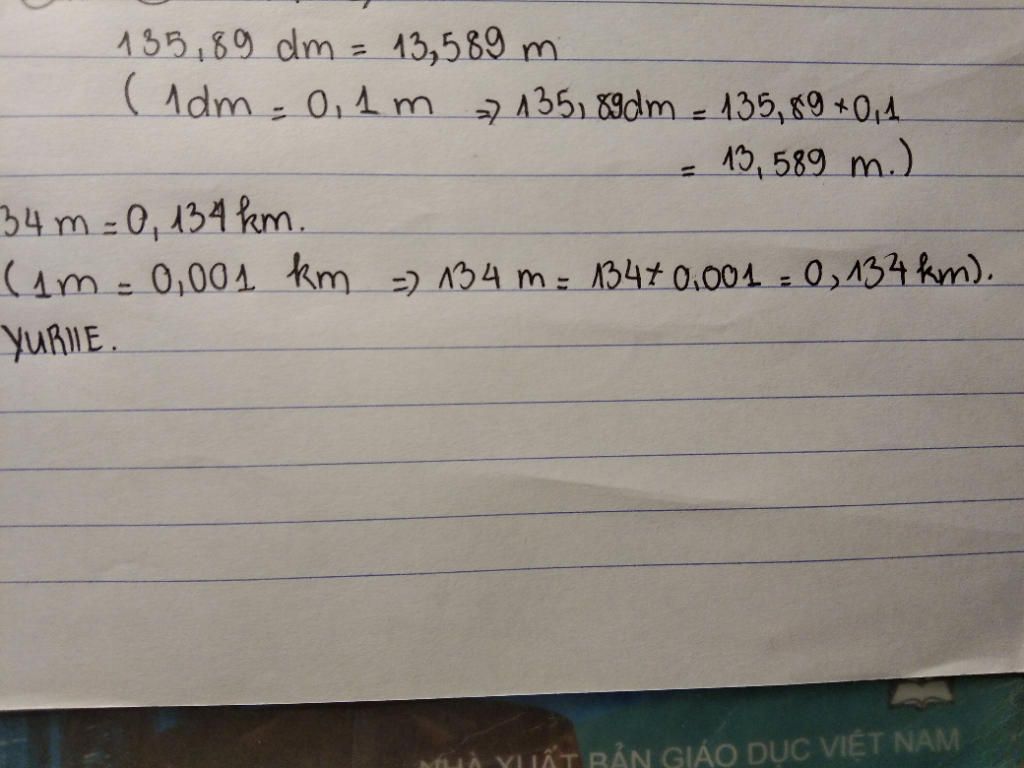 135,89 dm = 13,589 m
( 1dm = 0,1 m => 135,89dm = 135,89 * 0,1
= 13,589 m.)
34 m = 0,134 km.
(1m = 0,001 km => 134 m = 134 * 0,001 = 0,134 km).
YURIIE.
NHÀ XUẤT BẢN GIÁO DỤC VIỆT NAM